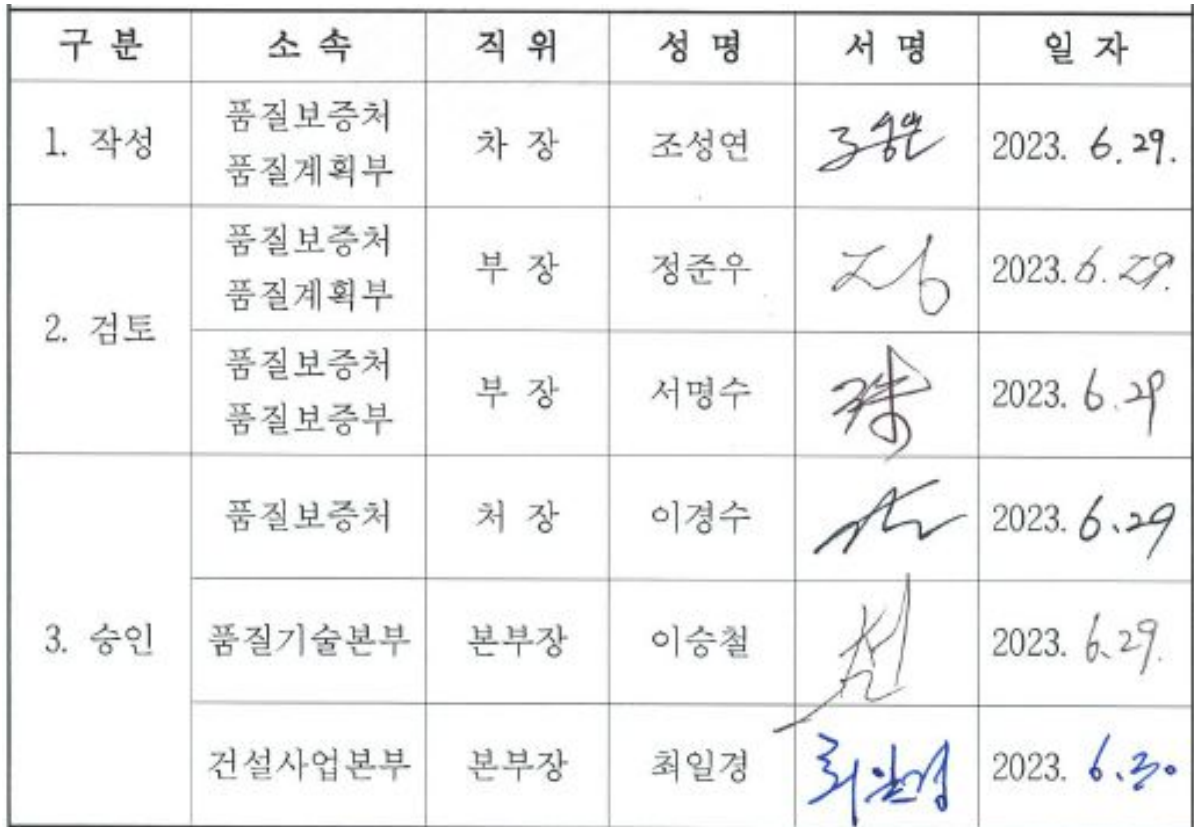 구 분 소 속 직 위 성 명 서 명 일 자
1. 작성 품질보증처 품질계획부 차 장 조성연 2023. 6. 29.
2. 검토 품질보증처 품질계획부 부 장 정준우 2023. 6. 29.
품질보증처 품질보증부 부 장 서명수 2023. 6. 29
3. 승인 품질보증처 처 장 이경수 2023. 6. 29
품질기술본부 본부장 이승철 2023. 6. 29.
건설사업본부 본부장 최일경 최일경 2023. 6. 30